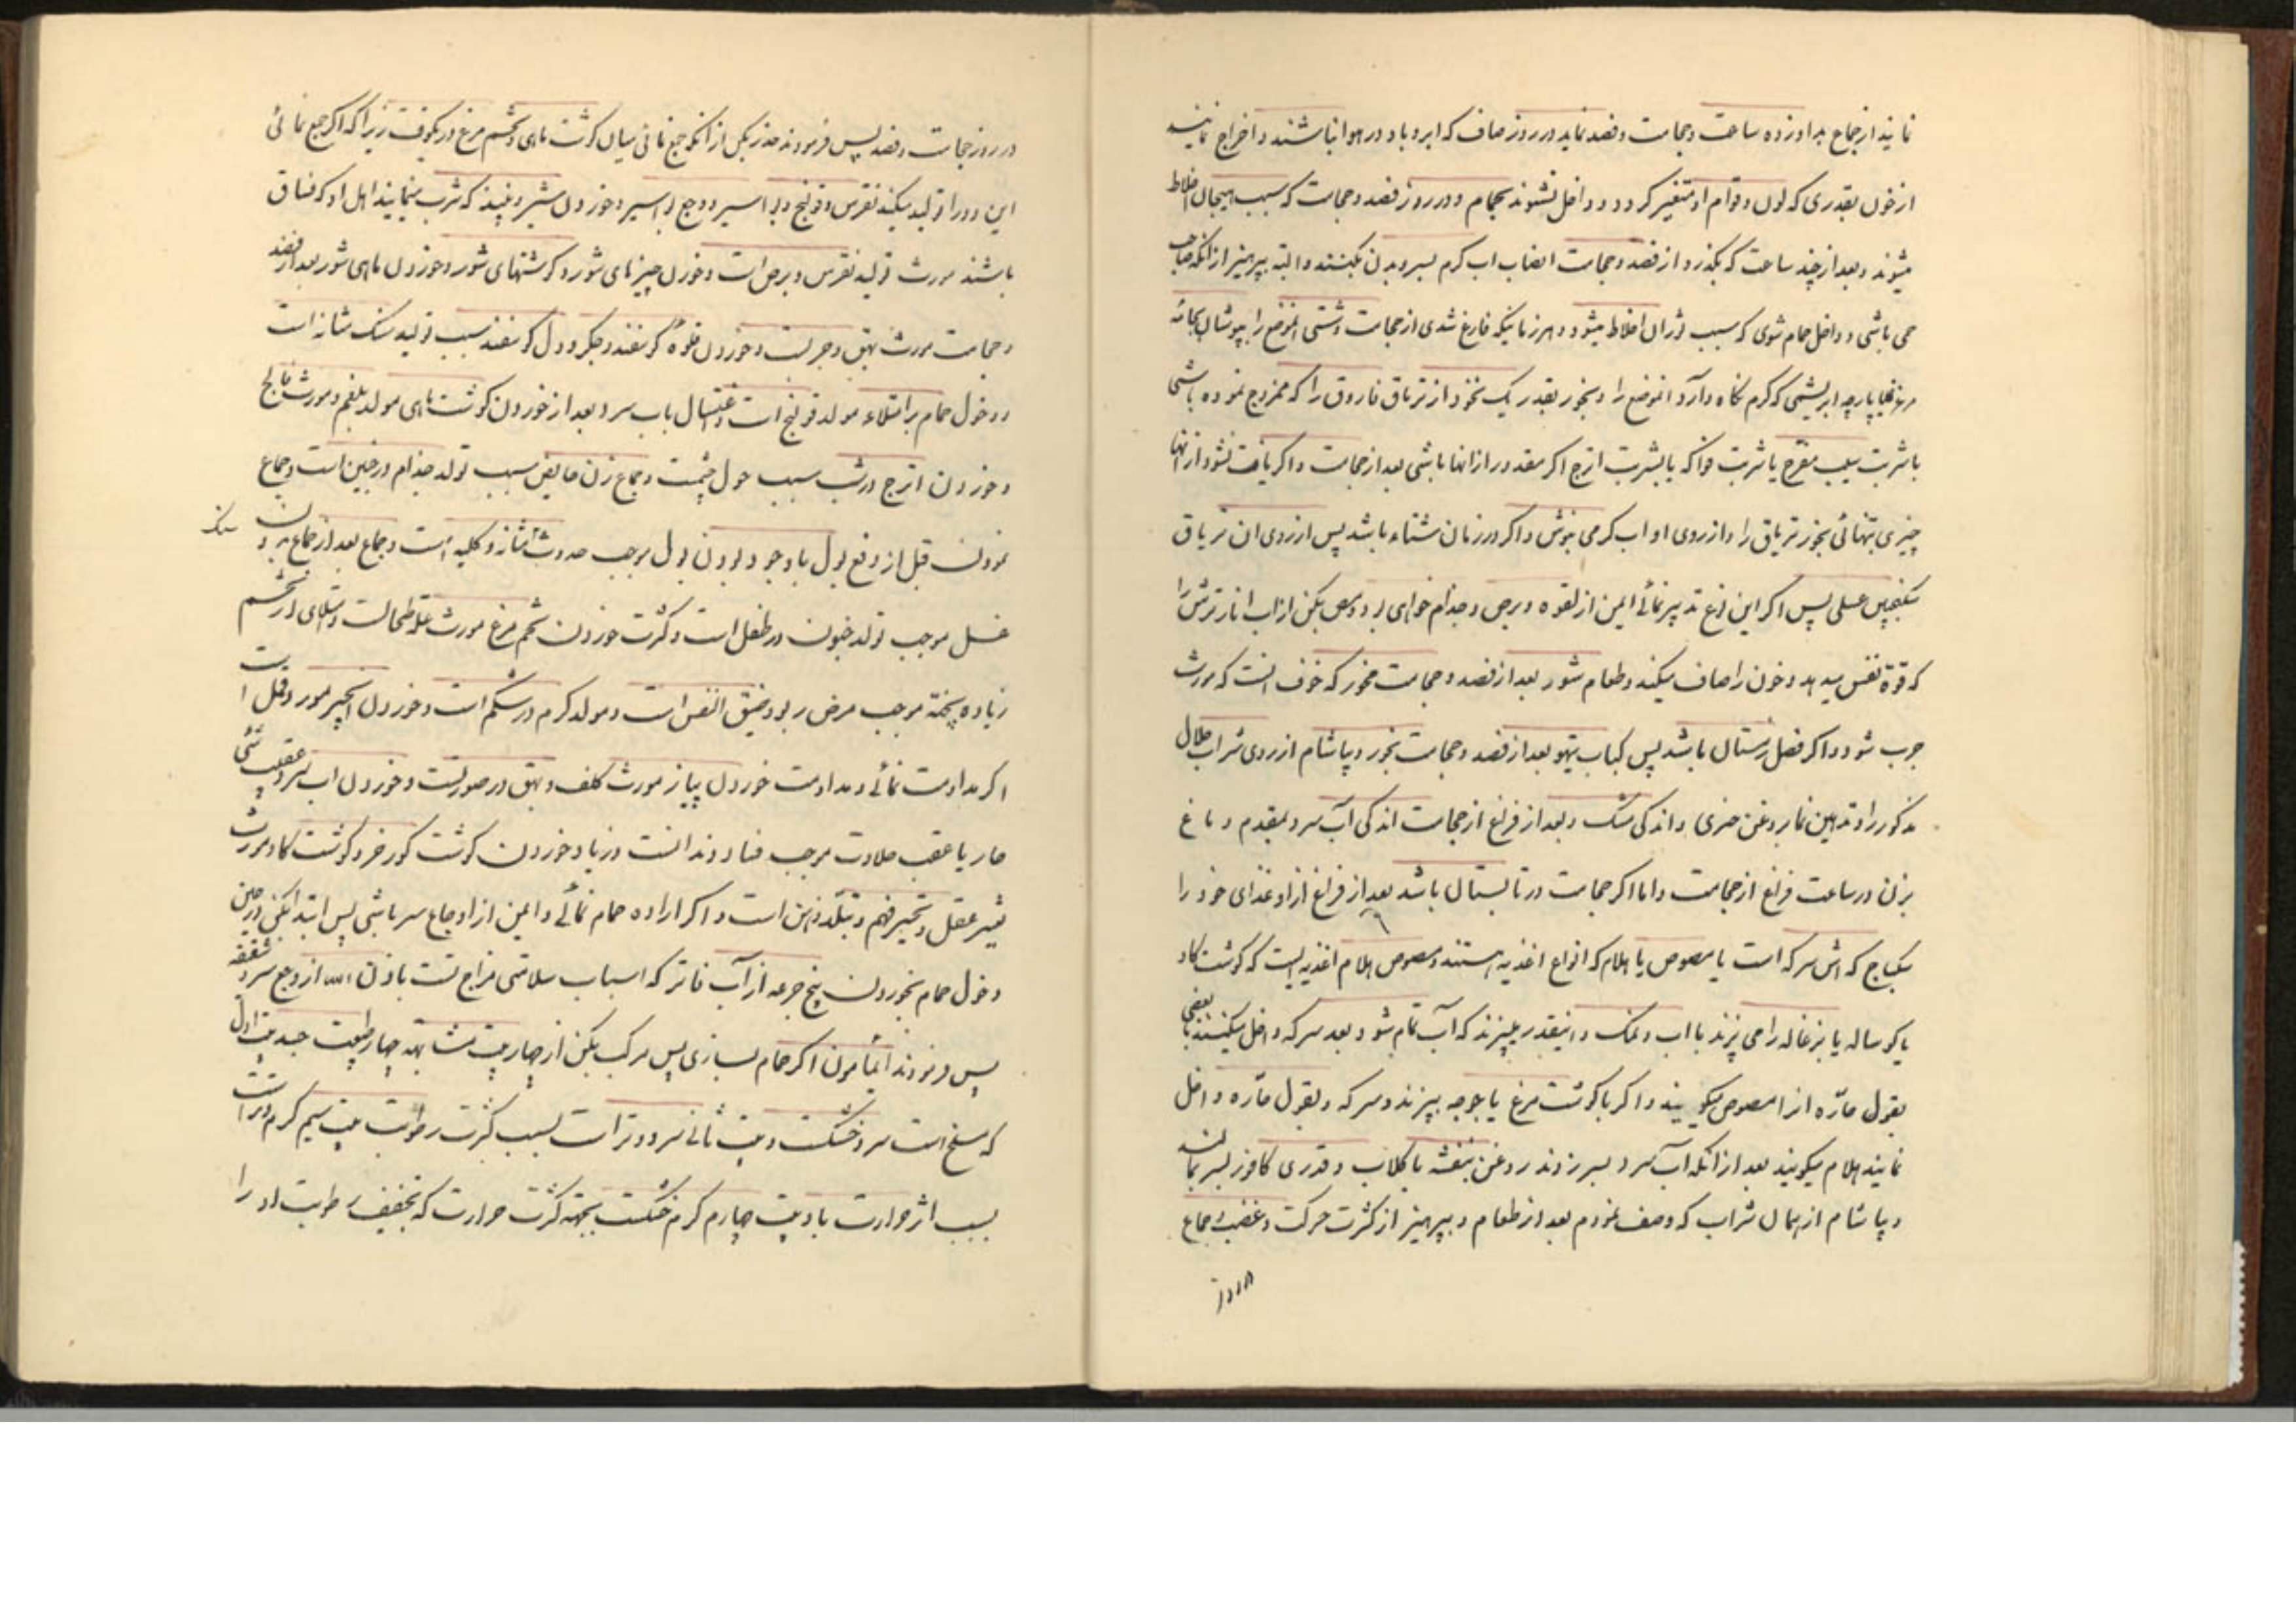 نمایند از جماع بدوازده ساعت و حجامت و فصد نماید در روز صاف که ابر و باد در هوا نباشند و اخراج نمایند
از خون بقدری که لون و قوام او متغیر کردد و داخل نشوند بحمام و در روز فصد و حجامت که سبب هیجان اخلاط
میشوند و بعد از چند ساعت که بکذرد از فصد و حجامت انصاب اب کرم بسر و بدن نکنند و البته بپرهیز از انکه صاحب
حمی باشی و داخل حمام شوی که سبب ثوران اخلاط میشود و هر زمانیکه فارغ شدی از حجامت و شستی الموضع را بپوشان بجامه
مرعزی یا پارچه ابریشمی که کرم نکاه دارد انموضع را و بخور بقدر یک نخود از تریاق فاروق را که ممزوج نموده باشی
با شربت سیب مفرح یا شربت فواکه یا بشربت اترج اکر مقدور از انها باشی بعد از حجامت و اکر یافت نشود از انها
چیزی بتنهائی بخور تریاق را و از روی او اب کرمی بنوش و اکر در زمان شتاء باشد پس از روی ان تریاق
سکنجبین عسلی پس اکر این نوع تدبیر نمائے ایمن از لقوه و برص و جذام خواهی بود و مص بکن از اب انار ترش را
که قوة نفس میدهد و خون را صاف میکند و طعام شور بعد از فصد و حجامت مخور که خوف انست که مورث
جرب شود و اکر فصل زمستان باشد پس کباب تیهو بعد از فصد و حجامت بخور و بیاشام از روی شراب حلال
مذکور را و تدهین نما بروغن خیری و اندکی مشک و بعد از فراغ از حجامت اندکی آب سرد بمقدم دماغ
بزن در ساعت فراغ از حجامت و اما اکر حجامت در تابستان باشد بعد از فراغ از او غذای خود را
سکباج که اش سرکه است یا مصوص یا هلام که انواع اغذیه هستند و مصوص هلام اغذیه ایست که کوشت کاو
یا کوساله یا بزغاله را می پزند با اب و نمک و انیقدر میپزند که آب تمام شود بعد سرکه داخل میکنند بعضی با
بقول حارّه از ا مصوص میکویند و اکر با کوشت مرغ یا جوجه بپزند و سرکه و بقول حارّه داخل
نمایند هلام میکویند بعد از انکه آب سرد بسر زدند روغن بنفشه با کلاب و قدری کافور بسر بمالند
و بیاشام از همان شراب که وصف نمودم بعد از طعام و بپرهیز از کثرت حرکت و غضب و جماع
در روز
در روز حجامت و فصد پس فرمودند حذر بکن از انکه جمع نمائی میان کوشت ماهی و تخم مرغ در یکوقت زیرا که اکر جمع نمائی
این دو را تولید میکند نقرس و قولنج و بواسیر و وجع بواسیر و خوردن شیر و نبیذ که شرب مینمایند اهل او که فساق
باشند مورث تولید نقرس و برص است و خوردن چیزهای شور و کوشتهای شور و خوردن ماهی شور بعد از فصد
و حجامت مورث بهق و جرب است و خوردن قلوهٔ کوسفند و جکر و دل کوسفند سبب تولید سنک مثانه است
و دخول حمام بر امتلاء مولد قولنج است و اغتسال باب سرد بعد از خوردن کوشت ماهی مولد بلغم و مورث فالج
و خوردن اترج در شب سبب حول چشمت و جماع زن حایض سبب تولد جذام در جنین است و جماع
نمودن قبل از دفع بول با وجود بودن بول موجب حدوث سنک مثانه و کلیه است و جماع بعد از جماع بدون
غسل موجب تولد جنون در طفل است و کثرت خوردن تخم مرغ مورث علة طحالست و امتلای از تخم
زیاده پخته موجب مرض ربو و ضیق النفس است و مولد کرم در شکم است و خوردن انجیر مورث قمل است
اکر مداومت نمائے و مداومت خوردن پیاز مورث کلف و بهق در صورتست و خوردن اب سرد عقب شئ
حار یا عقب حلاوت موجب فساد دندانست و زیاد خوردن کوشت کورخر و کوشت کاو مورث
تغییر عقل و تحیر فهم و تبلّد ذهن است و اکر اراده حمام نمائے و ایمن از اوجاع سر باشی پس ابتدا کن در حین
دخول حمام بخوردن پنج جرعه از آب فاتر که اسباب سلامتی مزاج تست باذن الله از وجع سر و شقیقه
پس فرمودند ای مأمون اکر حمام بسازی پس مرکب بکن از چهار بیت مشابهه چهار طبیعت جسد بیت اول
که مسلخ است سرد خشکست و بیت ثانے سرد و تر است بسبب کثرت رطوبت بیت سیم کرم و تر است
بسبب اثر حرارت با دو بیت چهارم کرم خشکست بجهة کثرت حرارت که تخفیف رطوبت او را